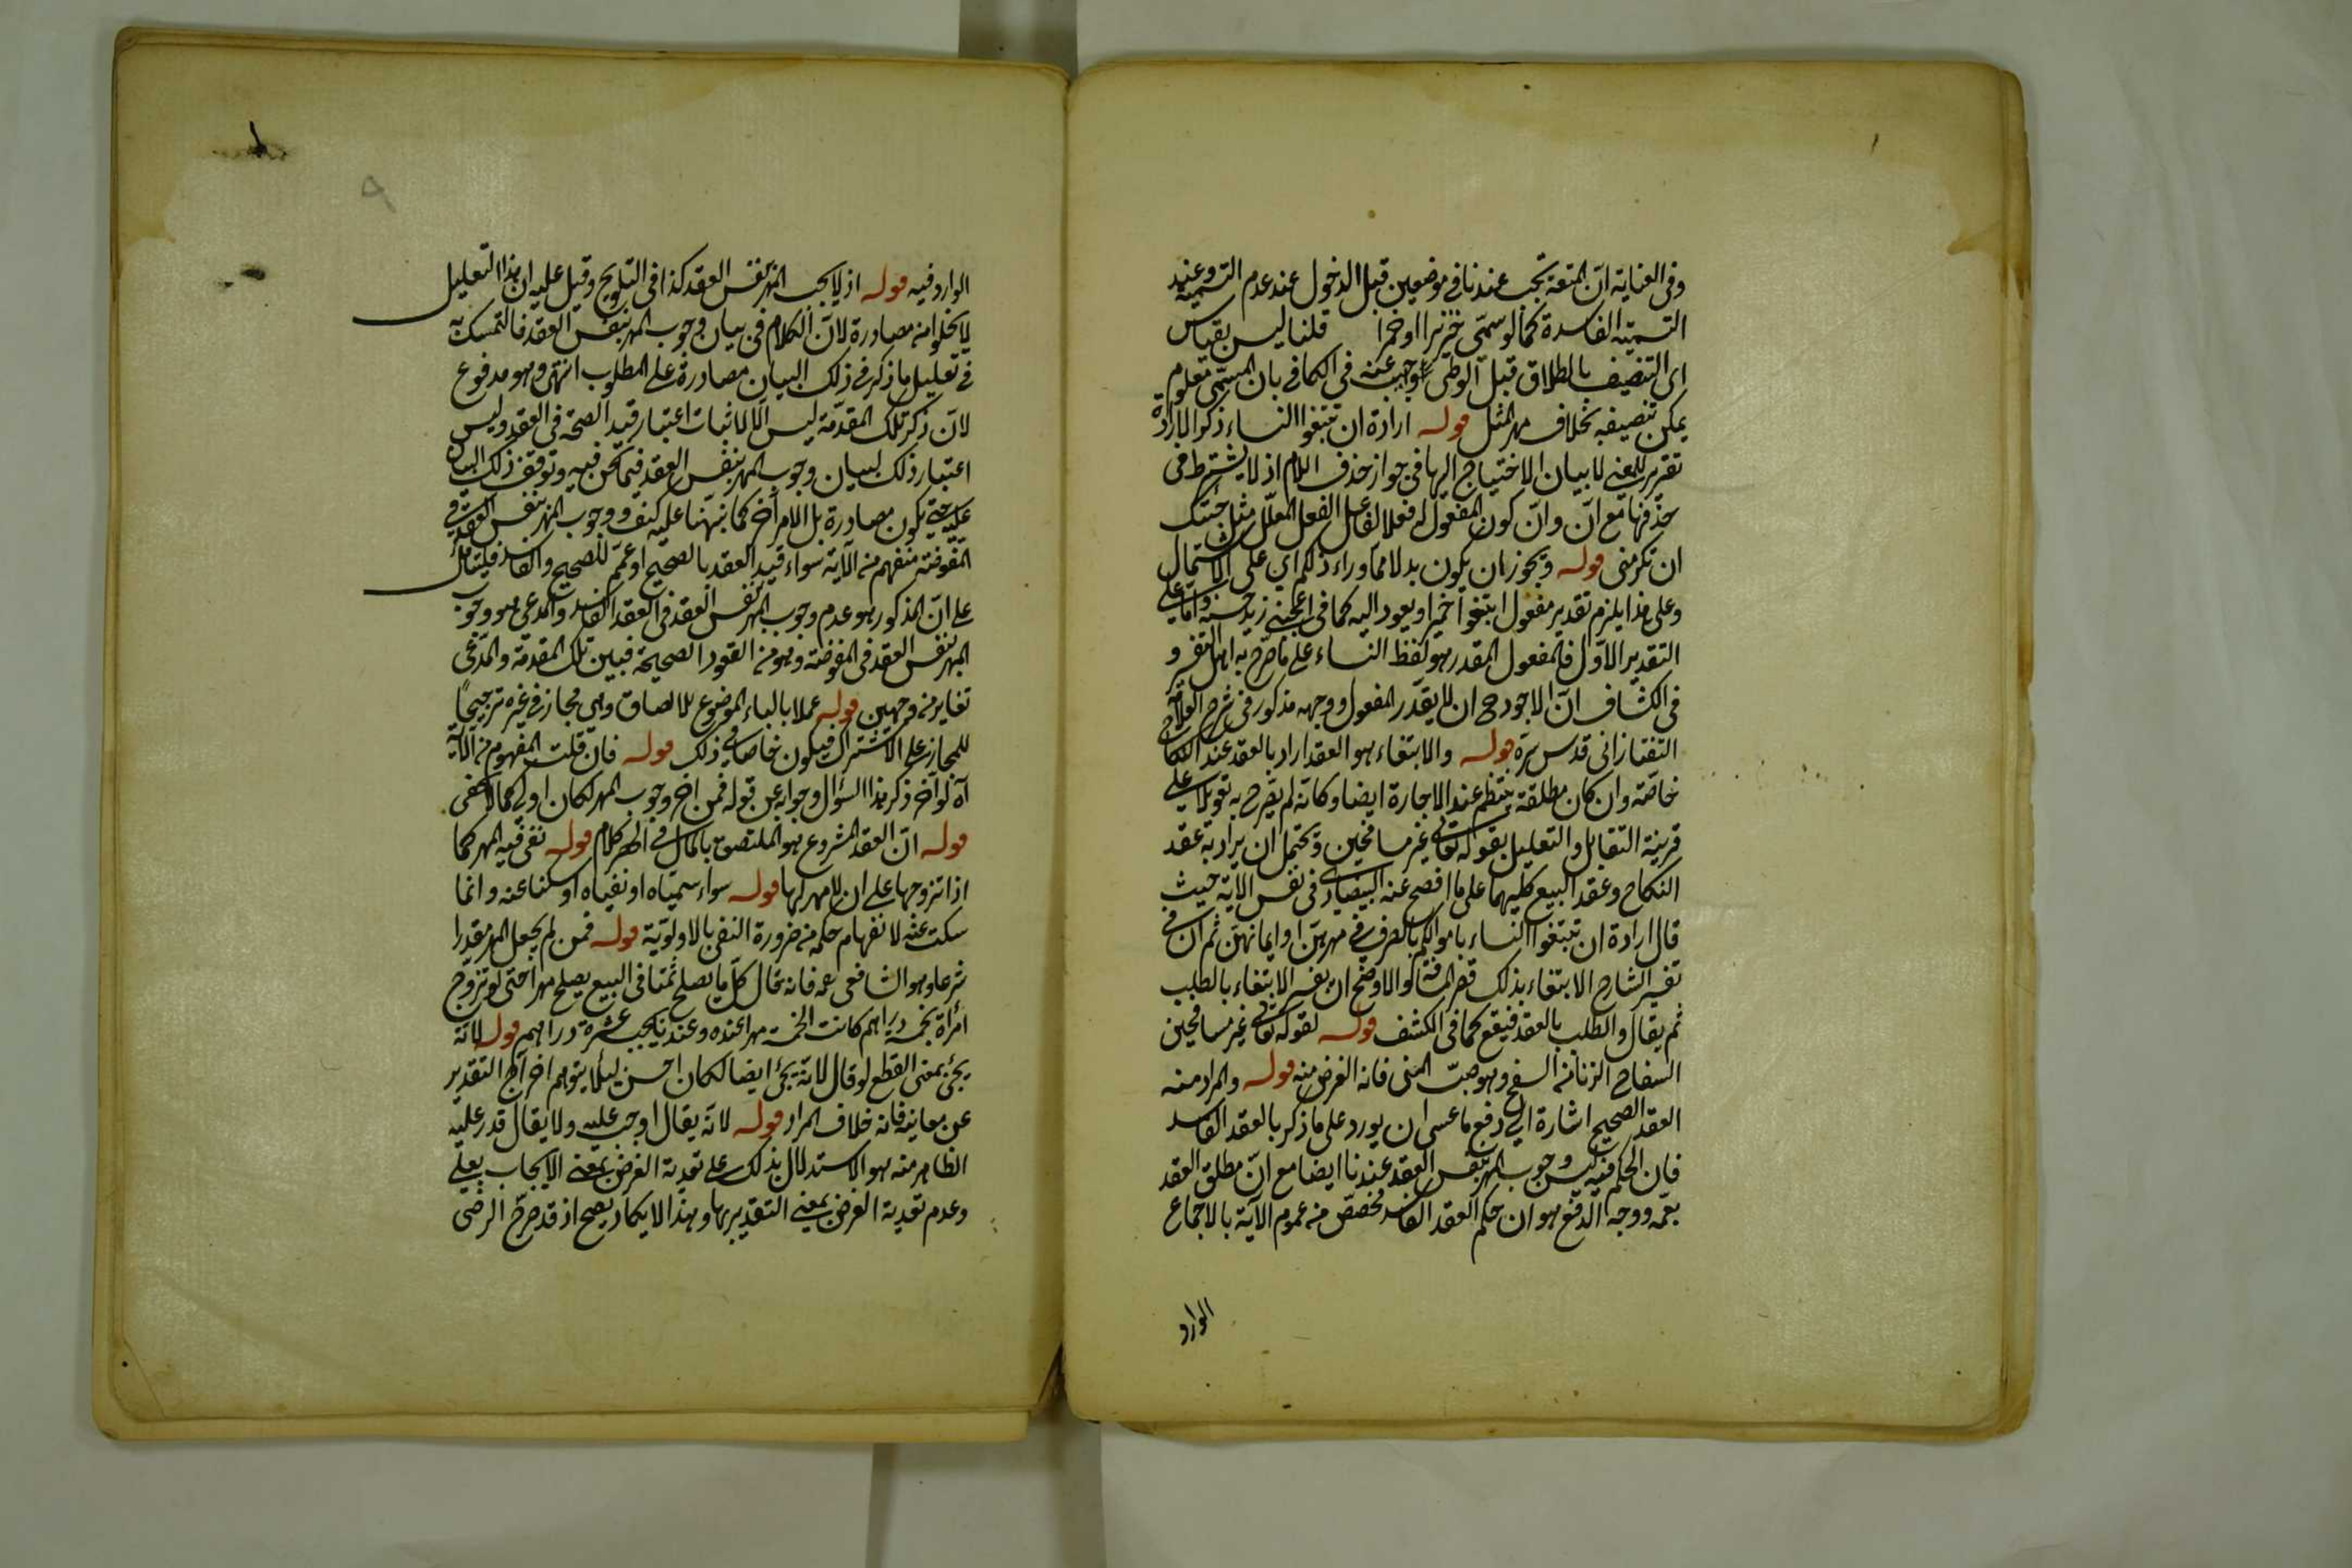 وفى العناية ان المتعة تجب عندنا فى موضعين قبل الدخول عند عدم التسمية وعند
التسمية الفاسدة كما لو سمى خنزيرا او خمرا قلنا ليس بقياس
اى التنصيف بالطلاق قبل الوطى عنه فى الكافى بان المسمى معلوم
يمكن تنصيفه بخلاف مهر المثل قوله ارادة ان تبتغوا النساء ذكر الارادة
تقرير للمعنى لا بيان الاحتياج اليها فى جواز حذف اللام اذ لا يشترط فى
حذفها مع ان وان كون المفعول له فعلا لفاعل الفعل المعلل مثل جئتك
ان تكرمنى قوله ويجوز ان يكون بدلا مما وراء ذلكم اى على الاشتمال
وعلى هذا يلزم تقدير مفعول ابتغوا ضميرا ويعود اليه كما فى اعجبنى زيد حسنه واما على
التقدير الاول فالمفعول المقدر هو لفظ النساء على ما صرح به اهل التفسير و
فى الكشاف ان الاجود ح ان لا يقدر المفعول ووجهه مذكور فى شرح العلامة
التفتازانى قدس سره قوله والابتغاء هو العقد اراد بالعقد عقد النكاح
خاصة وان كان مطلقه ينتظم عقد الاجارة ايضا وكانه لم يصرح به تعويلا على
قرينة التقابل والتعليل بقوله تعالى غير مسافحين ويحتمل ان يراد به عقد
النكاح وعقد البيع كليهما على ما افصح عنه البيضاوى فى تفسير الآية حيث
قال ارادة ان تبتغوا النساء باموالكم بالصرف فى مهورهن او اثمانهن ثم ان فى
تفسير الشارح الابتغاء بذلك قصر المسافة والاوضح ان يفسر الابتغاء بالطلب
ثم يقال والطلب بالعقد يقع كما فى الكشف قوله لقوله تعالى غير مسافحين
السفاح الزنا من السفح وهو صب المنى فانه الغرض منه قوله والمراد منه
العقد الصحيح اشارة الى دفع ما عسى ان يورد على ما ذكر بالعقد الفاسد
فان الحكم فيه ليس وجوب المهر بنفس العقد عندنا ايضا مع ان مطلق العقد
يعمه ووجه الدفع هو ان حكم العقد الفاسد مخصص من عموم الآية بالاجماع
الوارد
الوارد فيه قوله اذ لا يجب المهر بنفس العقد كذا فى التلويح وقيل عليه ان هذا التعليل
لا يخلو من مصادرة لان الكلام فى بيان وجوب المهر بنفس العقد فالتمسك به
فى تعليل ما ذكر فى ذلك البيان مصادرة على المطلوب انتهى وهو مدفوع
لان ذكر تلك المقدمة ليس الا لاثبات اعتبار قيد الصحة فى العقد وليس
اعتبار ذلك لبيان وجوب المهر بنفس العقد فيما نحن فيه وتوقف ذلك البيان
عليه حتى يكون مصادرة بل لامر آخر كما نبهنا عليه كيف ووجوب المهر بنفس العقد فى
المفوضة منفهم من الآية سواء قيد العقد بالصحيح او عمم للصحيح والفاسد فليتأمل
على ان المذكور هو عدم وجوب المهر بنفس العقد فى العقد الفاسد والمدعى هو وجوب
المهر بنفس العقد فى المفوضة وهو من العقود الصحيحة فبين تلك المقدمة والمدعى
تغاير من وجهين قوله عملا بالباء الموضوع للالصاق وهى مجاز فى غيره ترجيحا
للمجاز على الاشتراك فيكون خاصا فى ذلك قوله فان قلت المفهوم من الآية
اه لو اخر ذكر هذا السؤال وجوابه عن قوله فمن اخر وجوب المهر لكان اولى كما لا يخفى
قوله ان العقد المشروع هو الملتصق بالمال فى كلام قوله نفى فيه المهر كما
اذا تزوجها على ان لا مهر لها قوله سواء سمياه او نفياه او سكتا عنه وانما
سكت عنه لانفهام حكمه من ضرورة النفى بالاولوية قوله فمن لم يجعل المهر مقدرا
شرعا وهو الشافعى رحمه فانه قال كل ما يصلح ثمنا فى البيع يصلح مهرا حتى لو تزوج
امرأة بخمسة دراهم كانت الخمسة مهرا عنده وعندنا يجب عشرة دراهم قوله لانه
يجئ بمعنى القطع لو قال لانه يجئ ايضا لكان احسن لئلا يتوهم اخراج التقدير
عن معانيه فانه خلاف المراد قوله لانه يقال اوجب عليه ولا يقال قدر عليه
الظاهر منه هو الاستدلال بذلك على تعدية الفرض بمعنى الايجاب بعلى
وعدم تعدية الفرض بمعنى التقدير بها وهذا لا يكاد يصح اذ قد صرح الرضى